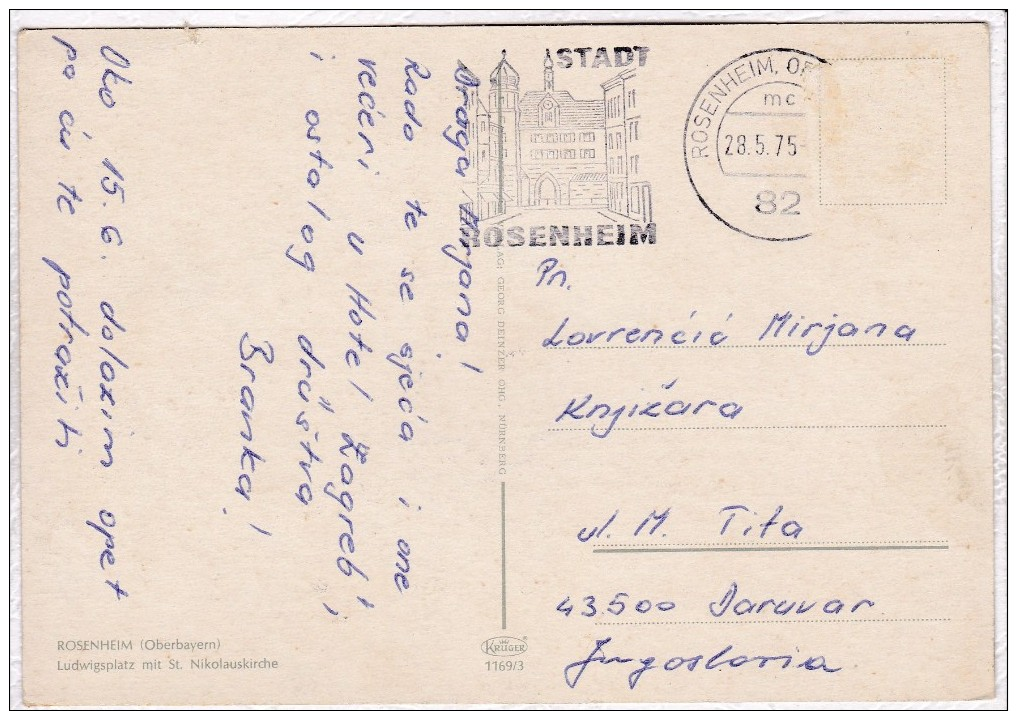 STADT
ROSENHEIM
ROSENHEIM, O
mc
28.5.75-
82
Draga Mirjana!
Rado te se sjeća i one
večeri u Hotel Zagreb"
i ostalog društva
Branka!
Oko 15.6. dolazim opet
pa ću te potražiti
Pn.
Lovrenčić Mirjana
Knjižara
ul. M. Tita
43.500 Daruvar
Jugoslavia
AG: GEORG DEINZER OHG, NÜRNBERG
KRÜGER
1169/3
ROSENHEIM (Oberbayern)
Ludwigsplatz mit St. Nikolauskirche